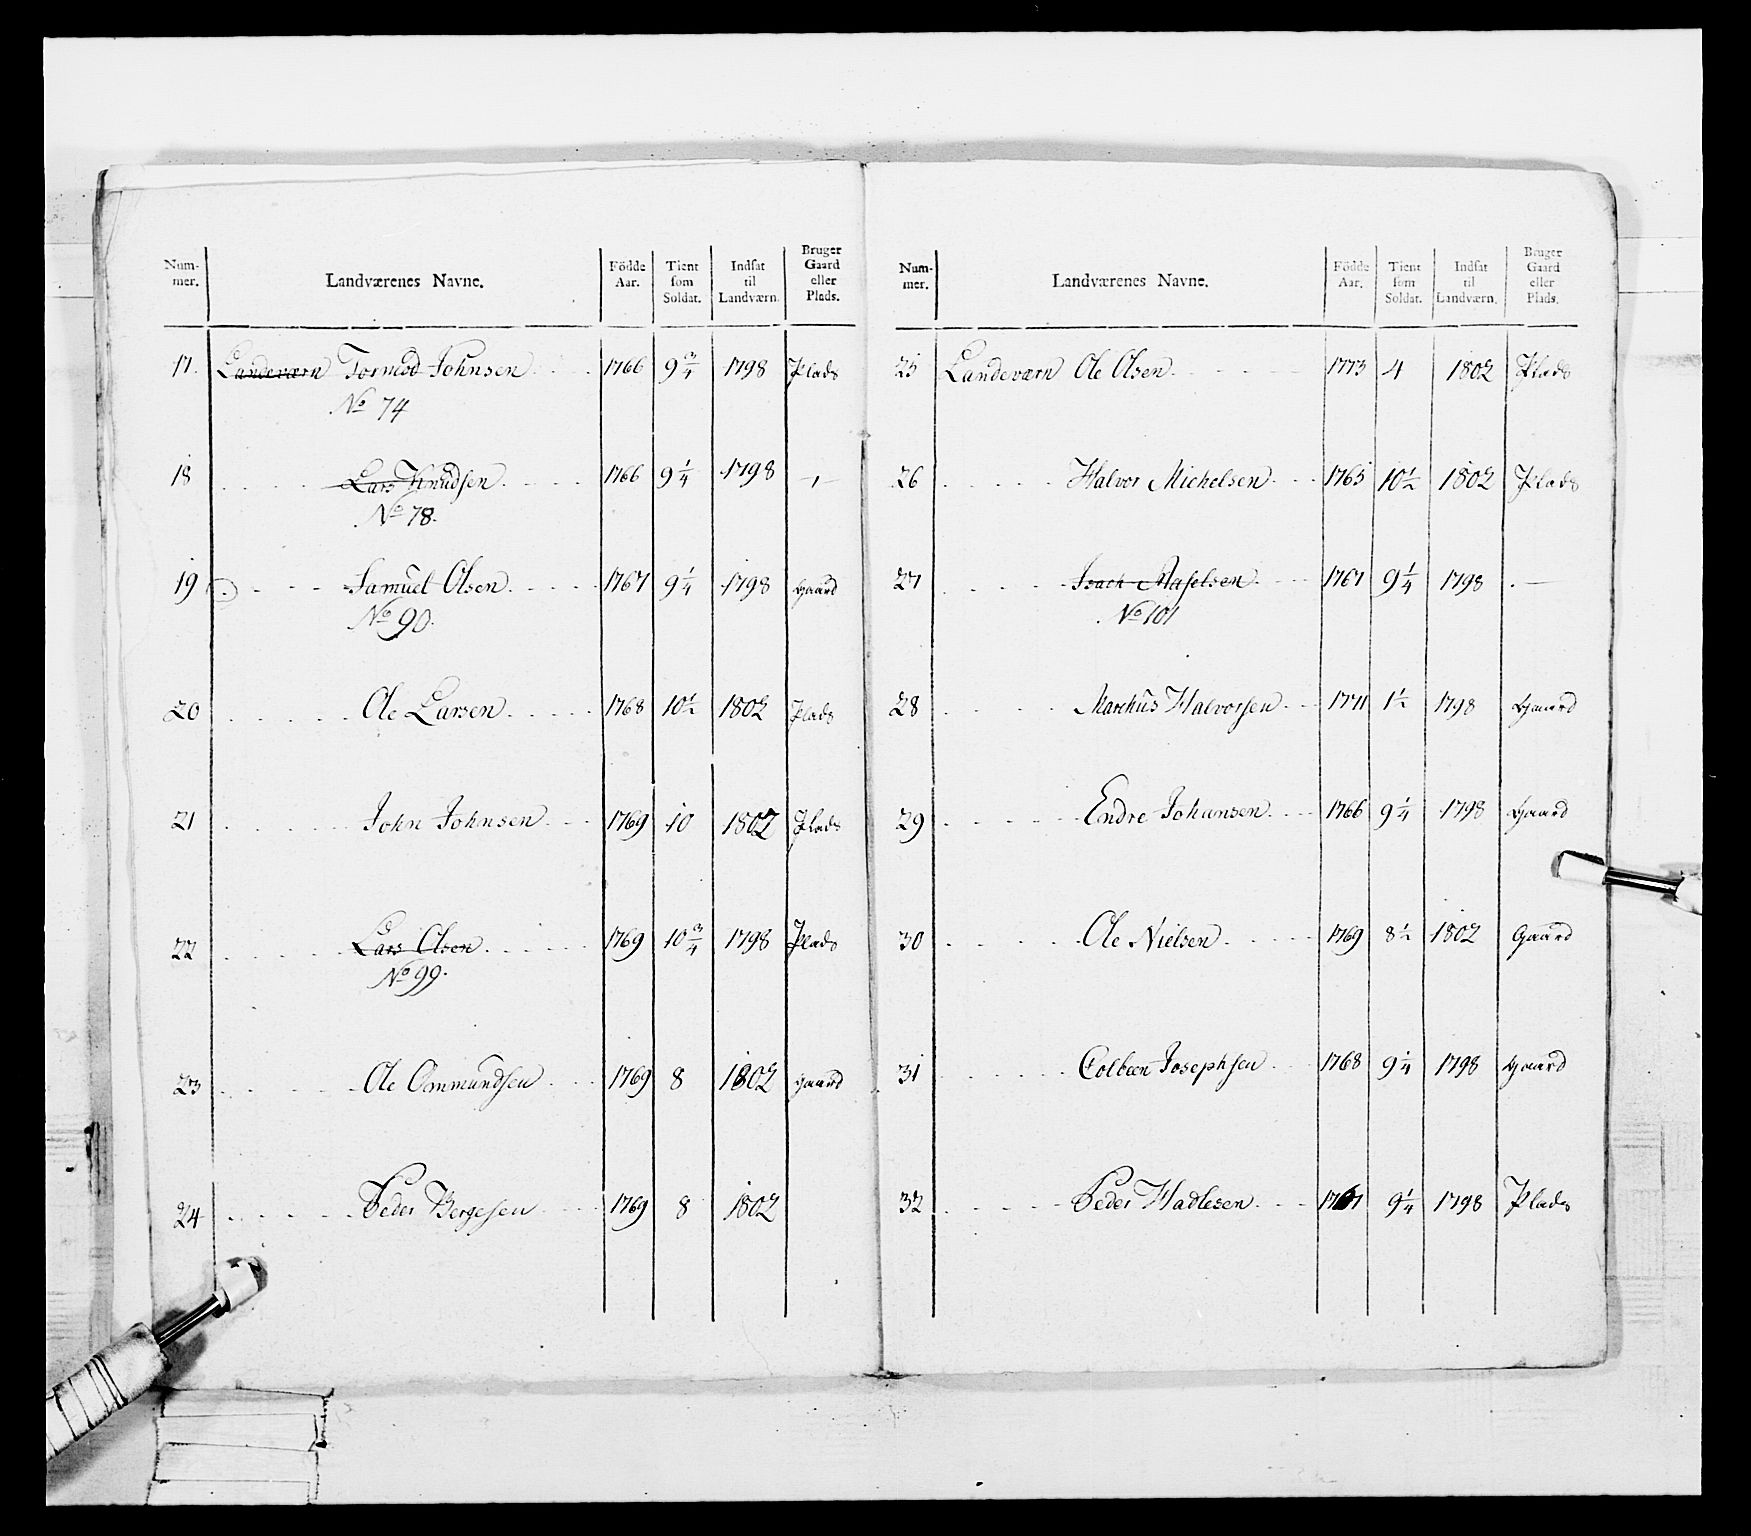 Num-
mer.
Landværenes Navne.
Födde
Aar.
Tient
som
Soldat.
Indsat
til
Landværn.
Bruger
Gaard
eller
Plads.
17. Landeværn Tormod Johnsen 1766 9 3/4 1798 Plads
No 74
18 Lars Knudsen 1766 9 1/4 1798 —,—
No 78.
19 Samuel Olsen 1767 9 1/4 1798 Gaard
No 90.
20 Ole Larsen 1768 10 1/2 1802 Plads
21 John Johnsen 1769 10 1802 Plads
22 Lars Olsen 1769 10 3/4 1798 Plads
No 99.
23 Ole Ommundsen 1769 8 1802 Gaard
24 Peder Bergesen 1769 8 1802
Num-
mer.
Landværenes Navne.
Födde
Aar.
Tient
som
Soldat.
Indsat
til
Landværn.
Bruger
Gaard
eller
Plads.
25 Landeværn Ole Olsen 1773 4 1802 Plads
26 Halvor Michelsen 1765 10 1/2 1802 Plads
27 1767 9 1/4 1798 —
No 101
28 Marchus Halvorsen 1771 1 1/2 1798 Gaard
29 Endre Johansen 1766 9 1/4 1798 Gaard
30 Ole Nielsen 1769 8 1/2 1802 Gaard
31 Colbeen Josephsen 1768 9 1/4 1798 Gaard
32 Peder Hadlesen 1767 9 1/4 1798 Plads